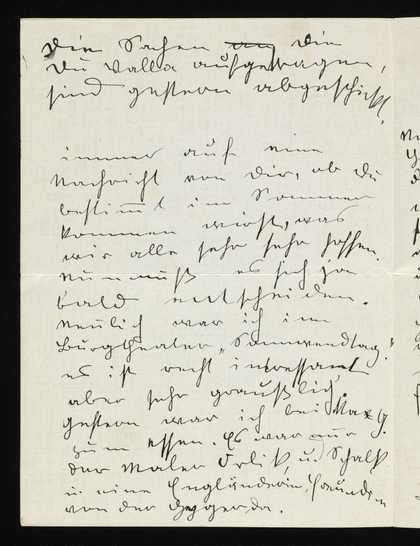 Die Sachen die
Du Valla aufgetragen,
sind gestern abgeschickt.
immer auf eine
Nachricht von Dir, ob du
bestimmt im Sommer
kommen wirst, was
wir alle sehr sehr hoffen.
Nun muß es sich ja
bald entscheiden.
Neulich war ich im
Burgtheater „Sonnwendtag."
es ist recht interessant
aber sehr grauslich.
gestern war ich bei May G.
zum essen. Es war nur
der Maler Orlik, u. Schalk
u. eine Engländerin, Freundin
von der da.